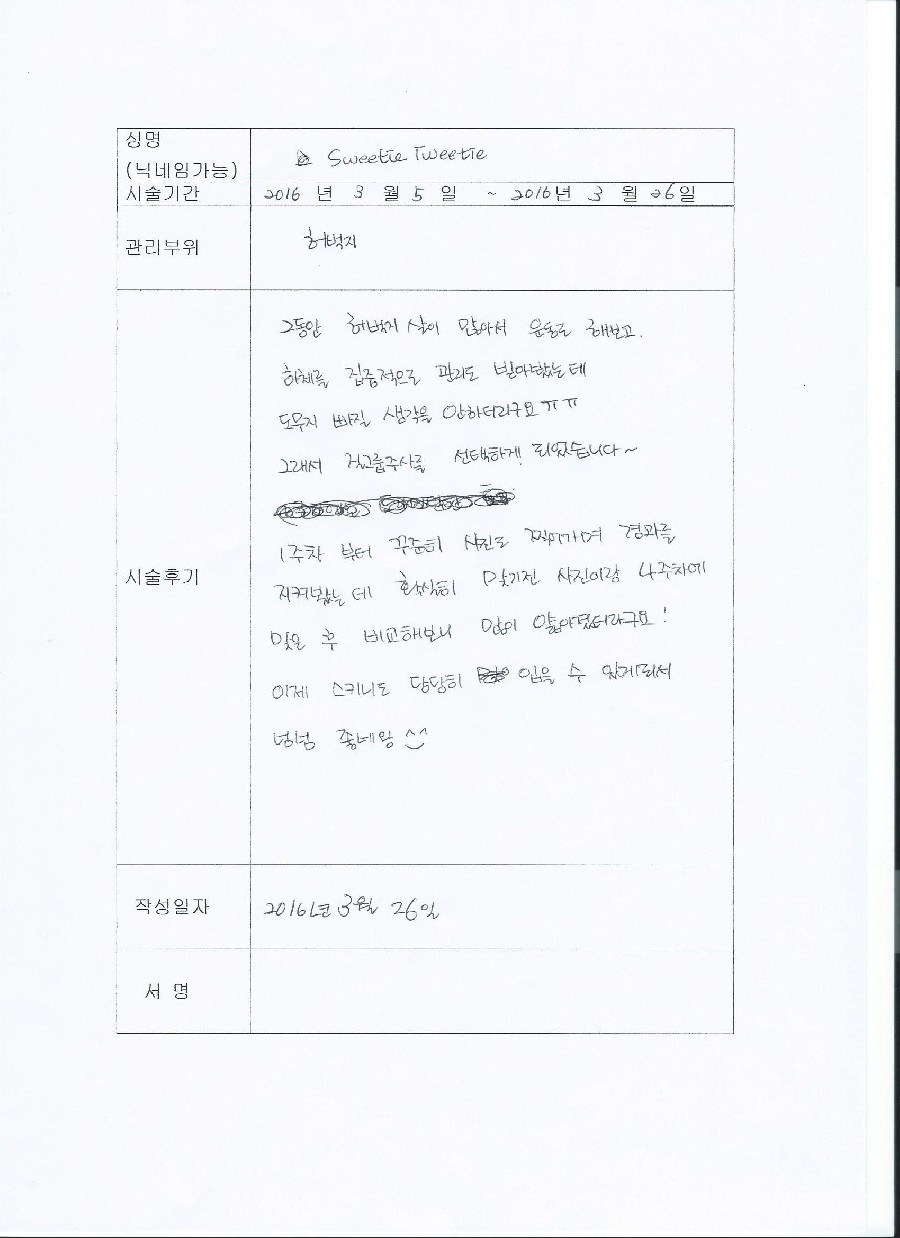 성명
(닉네임가능)
Sweetie Tweetie
시술기간
2016 년 3 월 5 일 ~ 2016년 3 월 26일
관리부위
허벅지
시술후기
그동안 허벅지 살이 많아서 운동도 해보고.
하체를 집중적으로 관리도 받아봤는데
도무지 빠질 생각을 안하더라구요 ㅠㅠ
그래서 걸그룹주사를 선택하게 되었습니다~
1주차 부터 꾸준히 사진도 찍어가며 경과를
지켜봤는데 확실히 맞기전 사진이랑 4주차에
맞은 후 비교해보니 많이 얇아졌더라구요!
이제 스키니도 당당히 입을 수 있게되서
넘넘 좋네왕 ^^
작성일자
2016년 3월 26일
서 명